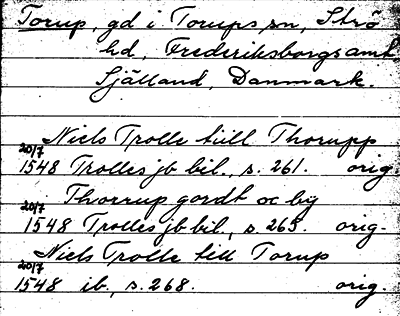 Torup, gd i Torups sn, Strö
hd, Frederiksborgs amt
Själland, Danmark.
Niels Trolle tiill Thorupp
20/7
1548 Trolles jb bil., s. 261. orig.
Thorrup gordt oc by
20/7
1548 Trolles jb bil., s. 265. orig.
Niels Trolle till Torup
20/7
1548 ib., s. 268. orig.